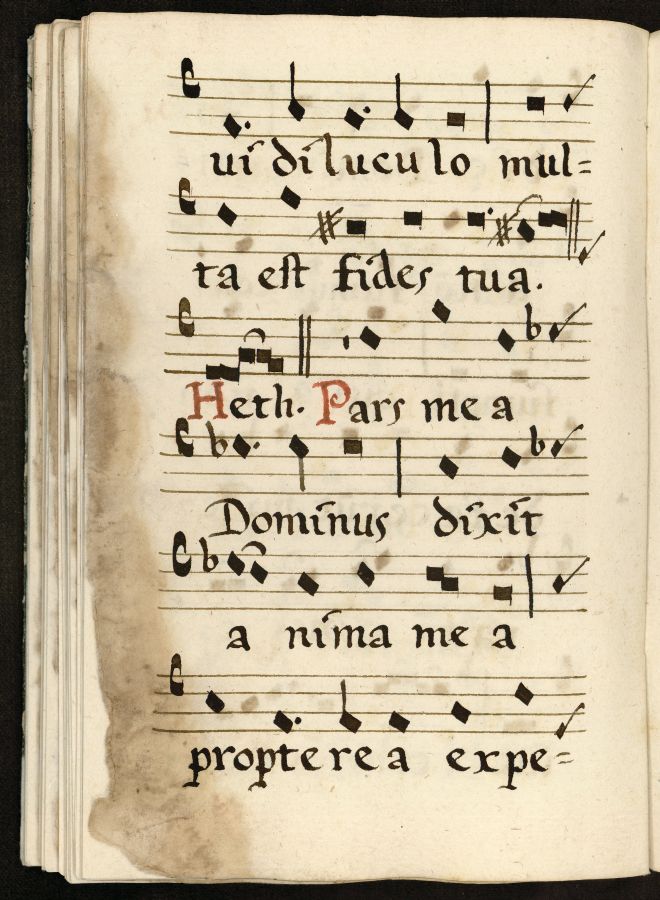 ui diluculo mul=
ta est fides tua.
Heth. Pars mea
Dominus dixit
anima mea
propterea expe=